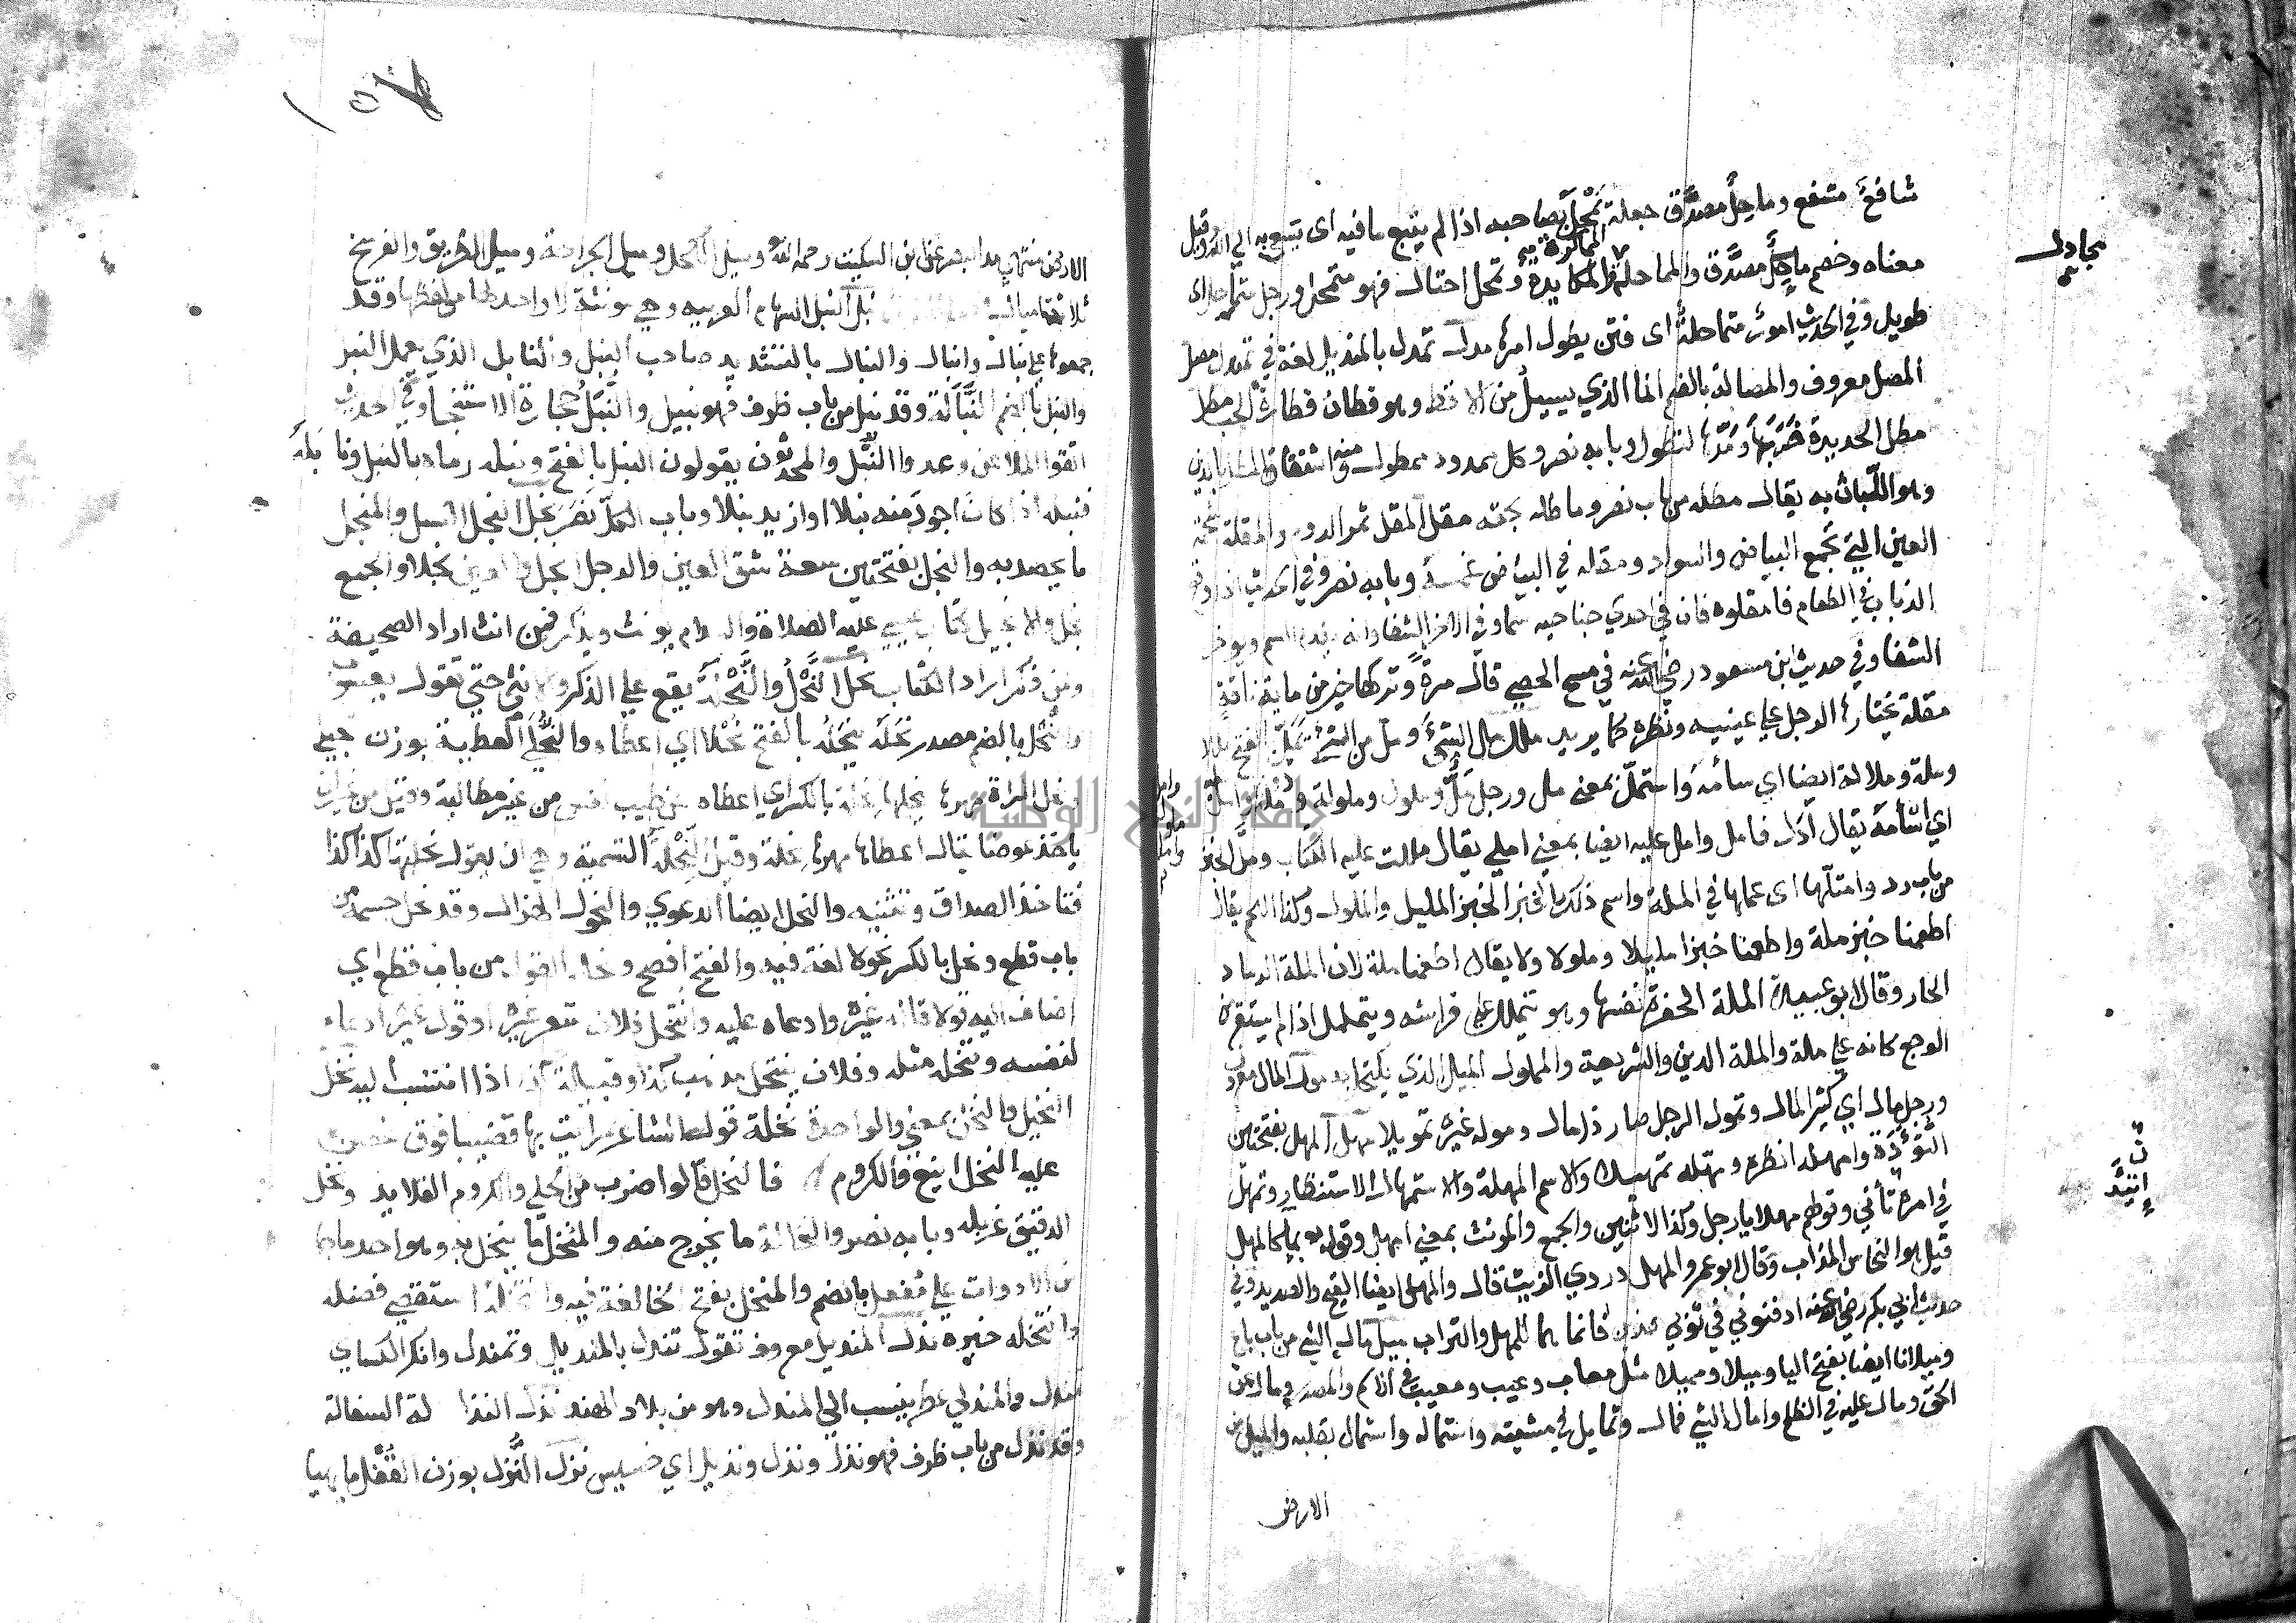 شافعٌ مشفع وماحِلٌ مصدَّق جعله يَمْحَل بصاحبه اذا لم يتبع ما فيه اى يسعى به الى الله وقيل
معناه وخصم ماحِلٌ مصدَّق والمماحلة المماكرة والمكايدة وتمحل احتال فهو متمحل ورجل متماحل اى
مجادل
طويل وفي الحديث امور متماحلة اى فتن يطول امرها مدل تمدل بالمنديل لغة في تمندل مصل
المصل معروف والمصالة بالضم الما الذي يسيل من الاقط وهو قطان قطارة الحب مطل
مطل الحديدة ضربها ومدّها لتطول وبابه نصر وكل ممدود ممطول ومنه اشتقاق المطل بالدين
وهو اللّيان به يقال مطله من باب نصر وماطله بحقه مقل المقل ثمر الدوم والمقلة شحمة
العين التي تجمع البياض والسواد ومقله في الما غمسه وبابه نصر وفي الحديث اذا وقع
الذباب في الطعام فامقلوه فان في احدي جناحيه سما وفي الاخر الشفا وانه يقدم السم ويوخر
الشفا وفي حديث ابن مسعود رضي الله عنه في مسح الحصى قال مرةً وتركها خير من ماية ناقة
مقلة يختارها الرجل على عينيه ونظره كما يريد ملل مل الشئَ ومل من الشئ يَمَلّ بالفتح مللا
وملة وملالة ايضا اي سأمه واستملّ بمعنى مل ورجل مَلٌّ وملول وملولة
اي اسأمه يقال ادَل فامل وامل عليه ايضا بمعنى املى يقال مللت عليه الكتاب وملّ الخبز
من باب رد وامتلّها اى عملها في الملة واسم ذلك الخبز الخبز المليل والملول وكذا اللحم يقال
اطعمنا خبز ملة واطعمنا خبزا مليلا ومملولا ولا يقال اطعمنا ملة لان الملة الرماد
الحار وقال ابو عبيدة الملة الحفرة نفسها وهو يتململ على فراشه ويتململ اذا لم يستقر من
الوجع كانه على ملة والملة الدين والشريعة والمملول الميل الذي يكتحل به مول المال معروف
ورجل مال اي كثير المال وتمول الرجل صار ذا مال ومولـه غيره تمويلا مهل المهل بفتحتين
التُؤَدَة وامهله انظره ومهّله تمهيلا والاسم المهلة والاستمهال الاستنظار وتمهل
إتئيد
في امره تأنى وقولهم مهلا يا رجل وكذا الاثنين والجمع والمونث بمعنى امهل وقوله بماء كالمهل
قيل هو النحاس المذاب وقال ابو عمرو المهل دردي الزيت قال والمهل ايضا القيح والصديد وفي
حديث ابي بكر رضي الله عنه ادفنوني في ثوبي هذين فانما هما للمهل والتراب ميل مال الشئ من باب باع
وميلانا ايضا بفتح اليا وميلا ومميلا مثل معاب ومعيب في الاسم والمصدر ومال عن
الحق ومال عليه في الظلم وامال الشئ فمال وتمايل في مشيته واستماله واستمال بقلبه والميل من
الارض
١٥٨
الارض منتهى مد البصر عن ابن السكيت رحمه الله وميل الكحل وميل الجراحة وميل الطريق والفرسخ
ثلاثة اميال نبل النبل السهام العربيه وهي مونثة لا واحد لها من لفظها وقد
جمعوها على نبال وانبال والنبال بالتشديد صاحب النبل والنابل الذي يعمل النبل
والنبل بالضم النَّبَالَة وقد نبل من باب ظرف فهو نبيل والنُّبَل حجارة الاستنجا وفي الحديث
اتقوا الملاعن وعدوا النُّبَل والمحدثون يقولون النبل بالفتح ونبله رماه بالنبل ونابَله
فنبله اذا كان اجود منه نبلا او ازيد نبلا وباب الكل نَصَر نجل النجل النسل والمنجل
ما يحصد به والنجل بفتحتين سعة شق العين والرجل انجل والعين نجلا والجمع
نجل والانجيل كتاب عيسى عليه الصلاة والسلام يونث ويذكر فمن انث اراد الصحيفة
ومن ذكر اراد الكتاب نحل النَّحْلُ والنَّحْلَة يقع على الذكر والانثى حتى تقول يعسوب
والنُّحْل بالضم مصدر نَحَلَه ينحَلُه بالفتح نُحْلا اي اعطاه والنُّحْلَى العطية بوزن حبلى
ونحل المراة مهرها ينحلها نِحلة بالكسر اي اعطاها عن طيب نفس من غير مطالبة وقيل من غير ان
ياخذ عوضا يقال اعطاها مهرها نحلة وقيل النِّحْلَة التسمية وهي ان يقول نحلتها كذا كذا
فتاخذ الصداق وتبينه والنحل ايضا الدعوي والنحول الهزال وقد نحل جسمه من
باب قطع ونحل بالكسر نحولا لغة فيه والفتح افصح ونحله القول من باب قطع اي
اضاف اليه قولا قاله غيره وادعاه عليه وانتحل فلان شعر غيره او قول غيره ادعاه
لنفسه وتنحله مثله وفلان ينتحل مذهب كذا وقبيلة كذا اذا انتسب اليه نخل
النخيل والنخل بمعنى والواحدة نخلة قول الشاعر رايت بها قضيبا فوق غصن
عليه النخل اينع والكروم فالنخل قالوا ضرب من الحلي والكروم القلايد ونخل
الدقيق غربله وبابه نصر والنخالة ما يخرج منه والمنخل ما ينخل به وهو احد ما جا
من الادوات على مُفعُل بالضم والمنخل بفتح الخا لغة فيه وانتخله استقصى فضله
وانتخله خيره ندل المنديل معروف تقول تندل بالمنديل وتمندل وانكر الكساي
تمندل والمندلي عطر ينسب الى المندل وهو من بلاد الهند نذل النذالة السفالة
وقد نذل من باب ظرف فهو نذل ونذيل اي خسيس نزل النُّزْل بوزن القُفْل ما يهيا